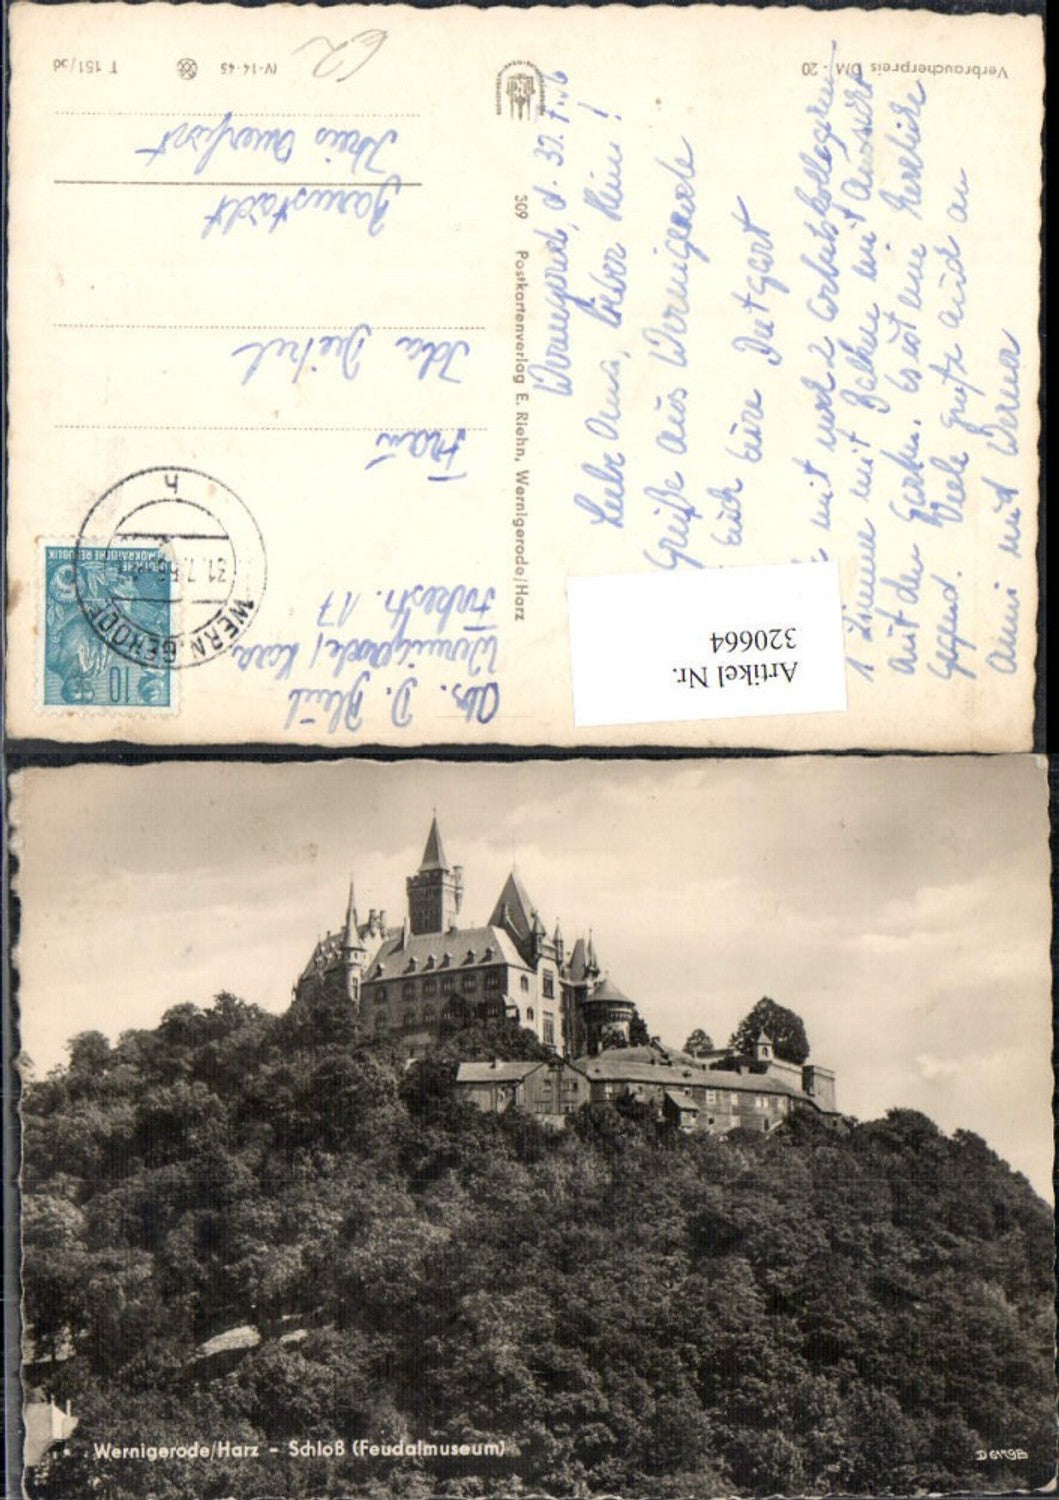 Verbraucherpreis DM -.20
IV-14-45
T 151/56
62
Wernigerode, d. 31.7.56
Liebe Oma, lieber Heini!
Grüße aus Wernigerode
euch eure
mit noch 2 Arbeitskollegen
1 Zimmer mit Balkon mit Aussicht
auf den Garten. Es ist eine herrliche
Gegend. Viele Grüße auch an
Anni und Werner
309 Postkartenverlag E. Riehn, Wernigerode/Harz
Abs. D.
Wernigerode/Harz
17
Frau
Ida
Barnstädt
Kreis Querfurt
10
DEMOKRATISCHE REPUBLIK
WERNIGERODE
31.7.56
h
Artikel Nr.
320664
Wernigerode/Harz - Schloß (Feudalmuseum)